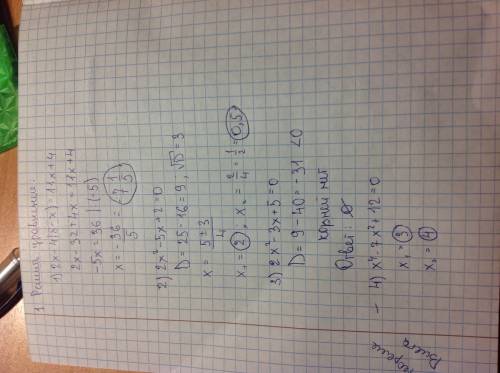 1. Решить уравнение.
1) 2x - 4(8-x) = 11x + 4
2x - 32 + 4x = 11x + 4
-5x = 36 | (:5)
x = -36/5 = 7 1/5
2) 2x² - 5x + 2 = 0
D = 25 - 16 = 9, √D = 3
x = (5 ± 3)/4
x₁ = 2, x₂ = 2/4 = 1/2 = 0,5
3) 2x² - 3x + 5 = 0
D = 9 - 40 = -31 < 0
корней нет
Ответ: ∅
- 4) x⁴ - 7x² + 12 = 0
x₁ = 3
x₂ = 4